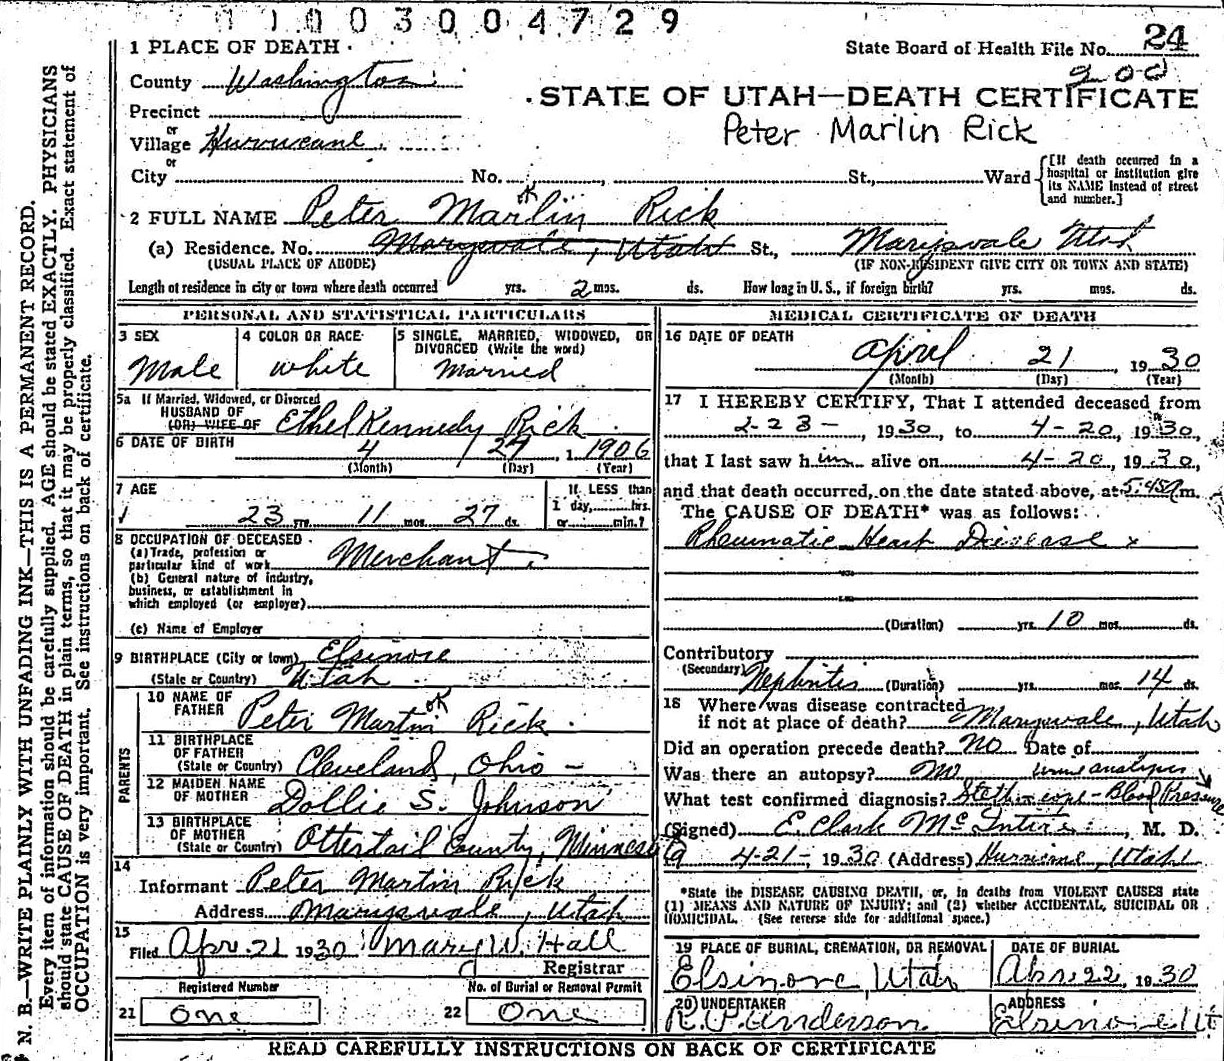 11003004729
1 PLACE OF DEATH
State Board of Health File No. 24
County Washington
200
STATE OF UTAH—DEATH CERTIFICATE
Precinct
Peter Marlin Rick
or
Village Hurricane
or
City No. St., Ward
[If death occurred in a hospital or institution give its NAME instead of street and number.]
2 FULL NAME Peter Marlin Rick
OK
(a) Residence. No. Marysvale, Utah St., Marysvale Utah
(USUAL PLACE OF ABODE) (IF NON-RESIDENT GIVE CITY OR TOWN AND STATE)
Length of residence in city or town where death occurred yrs. 2 mos. ds. How long in U. S., if foreign birth? yrs. mos. ds.
PERSONAL AND STATISTICAL PARTICULARS
3 SEX
Male
4 COLOR OR RACE
white
5 SINGLE, MARRIED, WIDOWED, OR DIVORCED (Write the word)
Married
5a If Married, Widowed, or Divorced
HUSBAND OF
(OR) WIFE OF Ethel Kennedy Rick
6 DATE OF BIRTH 4 24 1906
(Month) (Day) (Year)
7 AGE
23 yrs. 11 mos. 27 ds.
If LESS than
1 day, hrs.
or min.?
8 OCCUPATION OF DECEASED
(a) Trade, profession or particular kind of work Merchant
(b) General nature of industry, business, or establishment in which employed (or employer)
(c) Name of Employer
9 BIRTHPLACE (City or town) Elsinore
(State or Country) Utah
PARENTS
10 NAME OF FATHER Peter Martin Rick
OK
11 BIRTHPLACE OF FATHER
(State or Country) Cleveland, Ohio
12 MAIDEN NAME OF MOTHER Dollie S. Johnson
13 BIRTHPLACE OF MOTHER
(State or Country) Ottertail County, Minnesota
14
Informant Peter Martin Rick
Address Marysvale, Utah
15
Filed Apr. 21 1930 Mary W. Hall
Registrar
Registered Number No. of Burial or Removal Permit
21 One 22 One
MEDICAL CERTIFICATE OF DEATH
16 DATE OF DEATH
April 21, 1930
(Month) (Day) (Year)
17 I HEREBY CERTIFY, That I attended deceased from
2-23-, 1930, to 4-20, 1930,
that I last saw him alive on 4-20, 1930,
and that death occurred, on the date stated above, at 5:45 m.
The CAUSE OF DEATH* was as follows:
Rheumatic Heart Disease x
(Duration) yrs. 10 mos. ds.
Contributory
(Secondary) Nephritis (Duration) yrs. mos. 14 ds.
18 Where was disease contracted
if not at place of death? Marysvale, Utah
Did an operation precede death? No Date of
Was there an autopsy? No urine analysis
What test confirmed diagnosis? Stethoscope - Blood Pressure
(Signed) E. Clark McIntire, M. D.
4-21- 1930 (Address) Hurricane, Utah
*State the DISEASE CAUSING DEATH, or, in deaths from VIOLENT CAUSES state
(1) MEANS AND NATURE OF INJURY; and (2) whether ACCIDENTAL, SUICIDAL OR
HOMICIDAL. (See reverse side for additional space.)
19 PLACE OF BURIAL, CREMATION, OR REMOVAL
Elsinore, Utah
DATE OF BURIAL
Apr. 22, 1930
20 UNDERTAKER
R. P. Anderson
ADDRESS
Elsinore Ut
READ CAREFULLY INSTRUCTIONS ON BACK OF CERTIFICATE
N. B.—WRITE PLAINLY WITH UNFADING INK—THIS IS A PERMANENT RECORD.
Every item of information should be carefully supplied. AGE should be stated EXACTLY. PHYSICIANS
should state CAUSE OF DEATH in plain terms, so that it may be properly classified. Exact statement of
OCCUPATION is very important. See instructions on back of certificate.